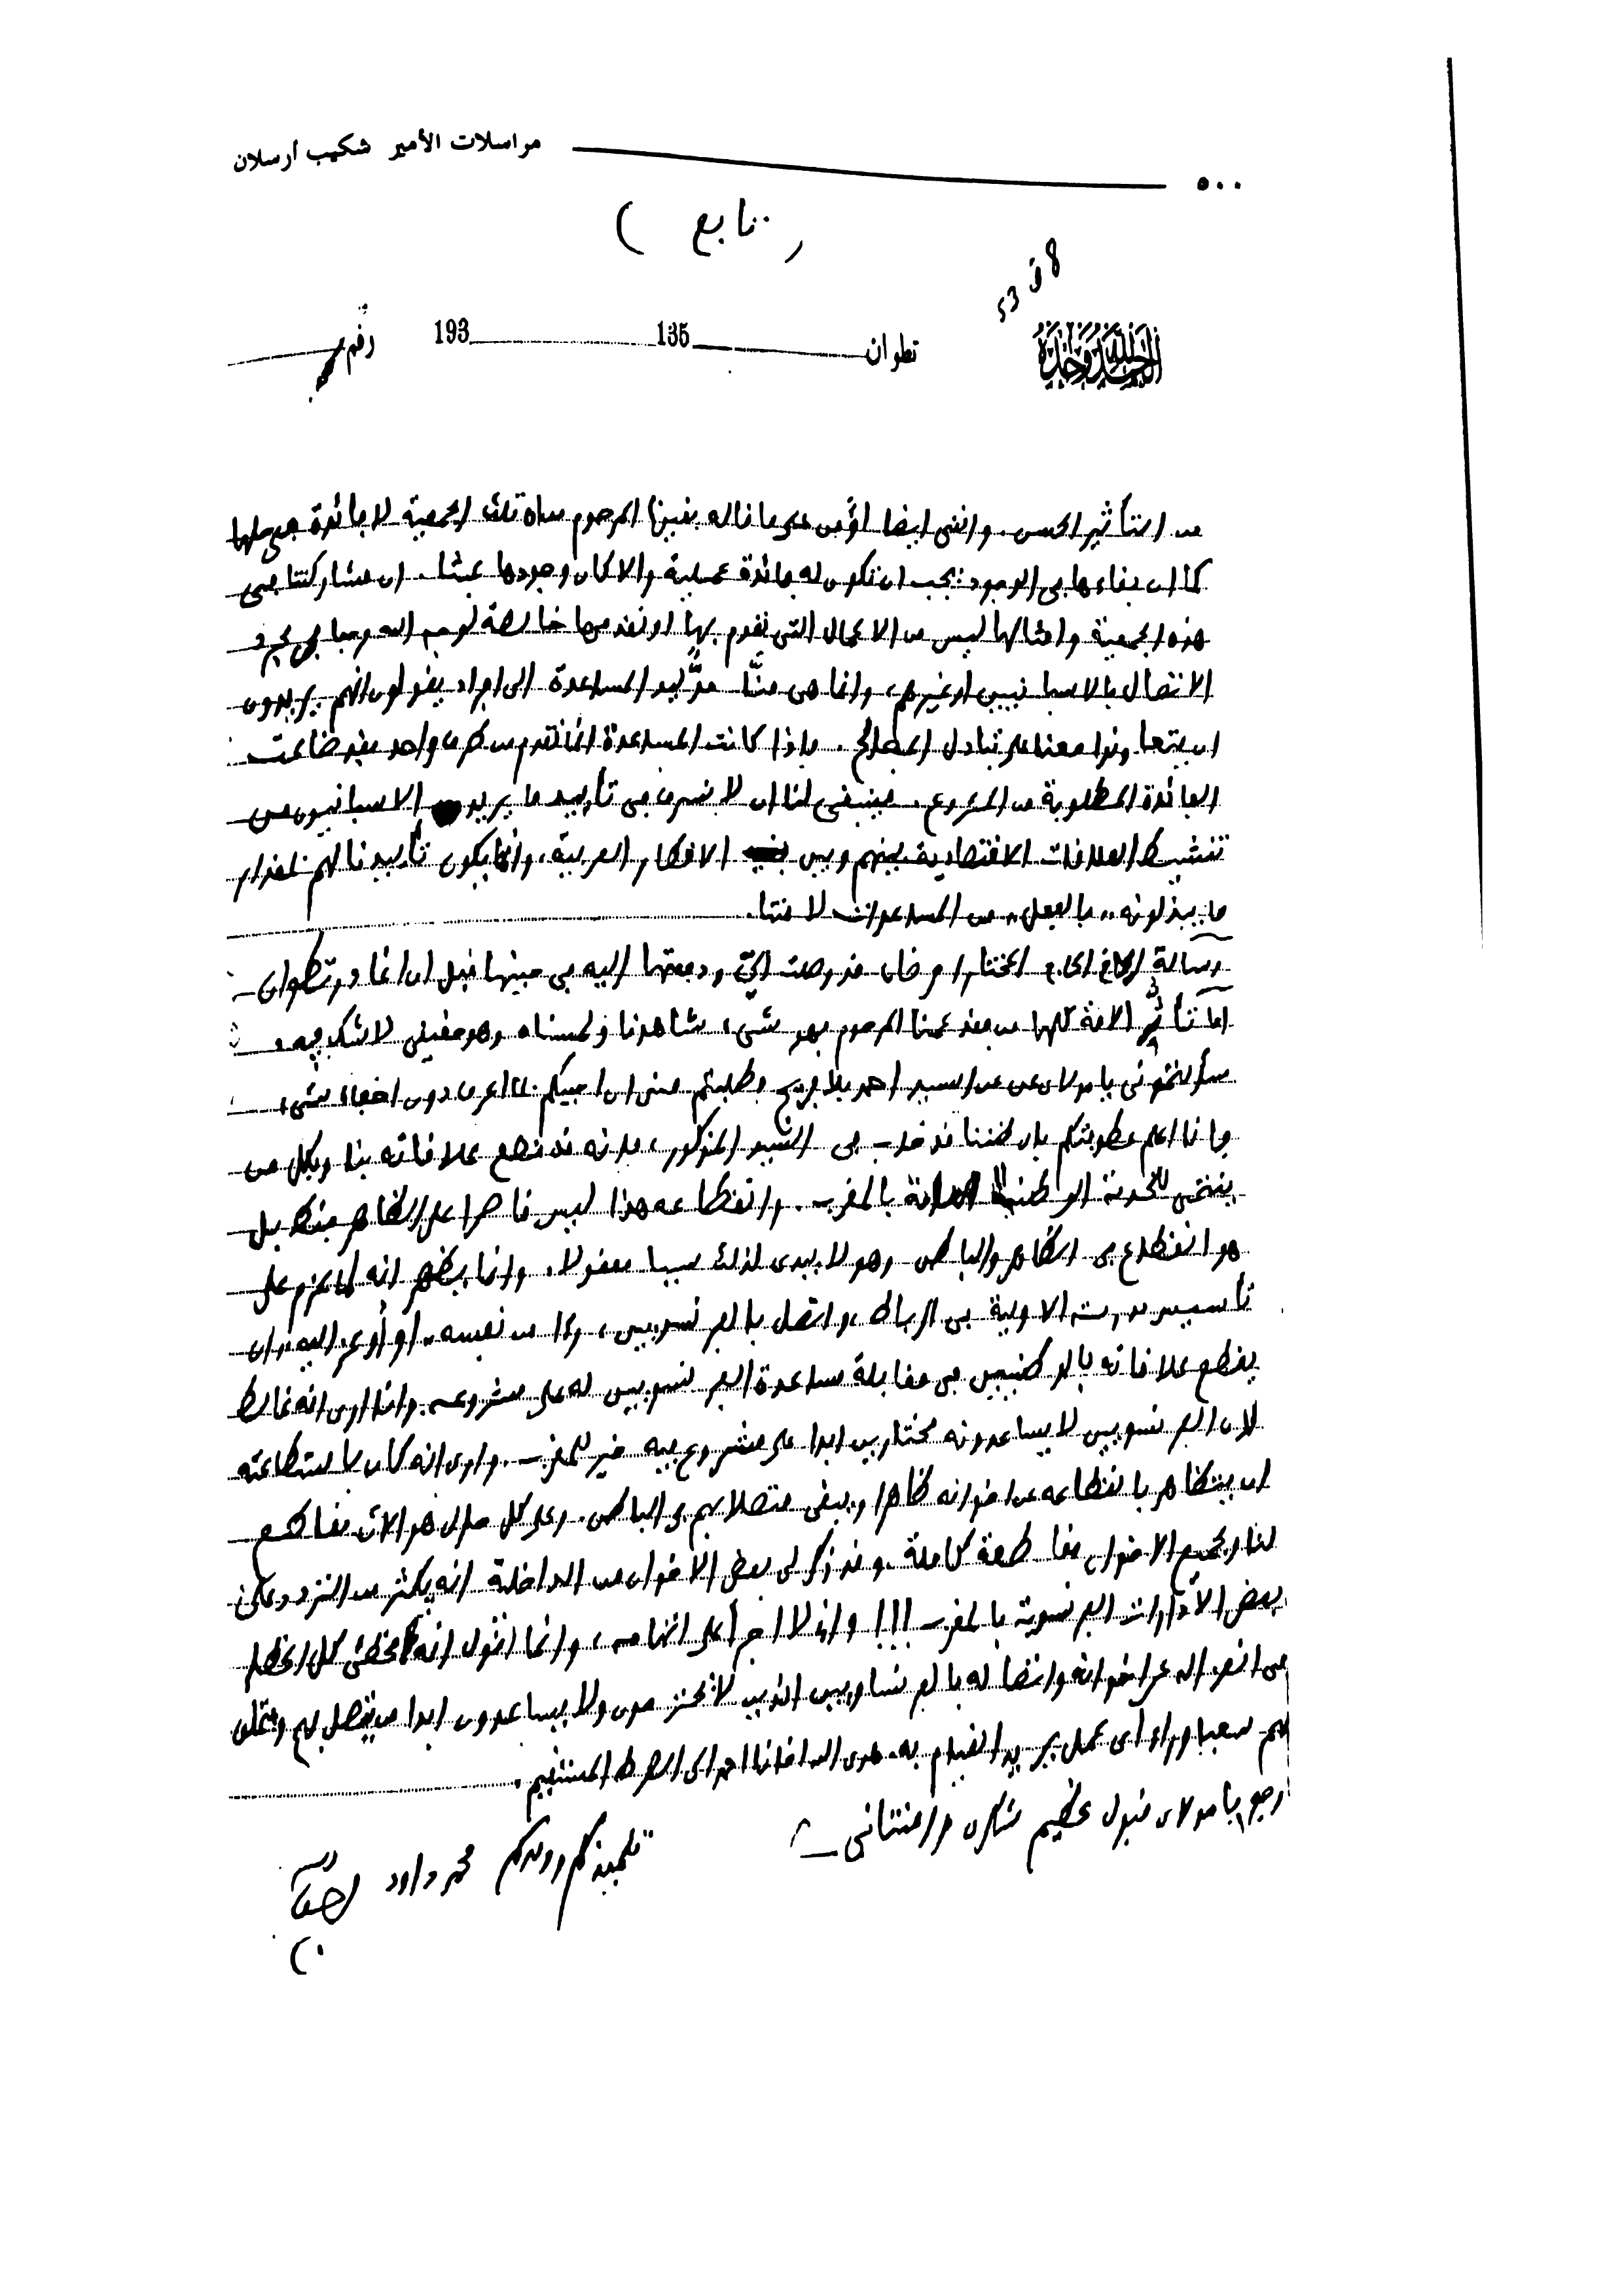 مراسلات الأمير شكيب أرسلان
٥٠٠
( تابع )
8 ق 53
الحمد لله وحده
تطوان 135 193 رقم
من التأثير الحسن. واننى ايضا اؤمن على ما قاله بفيدنا المرحوم من ان تلك الجمعية لا فائدة فى حلها
كما ان بقاءها فى الوجود يجب ان تكون له فائدة عملية والا كان وجودها عبثا. ان مشاركتنا فى
هذه الجمعية وامثالها ليس من الاعمال التى نقوم بها او نقدمها خالصة لوجه الله وحبا فى مجرد
الاتصال بالاسبانيين او غيرهم، وانما هى منّا مدّ ليد المساعدة الى افراد يقولون انهم يريدون
ان يتعاونوا معنا على تبادل المصالح. فاذا كانت المساعدة انما تقدم من طرف واحد فقد ضاعت
الفائدة المطلوبة من المشروع. فينبغى لنا ان لا نسرف فى تأييد ما يريده الاسبانيون من
تنشيط العلاقات الاقتصادية بينهم وبين الاقطار العربية، وانما يكون تأييدنا لهم بمقدار
ما يبذلونه "بالفعل" من المساعدات لامتنا.
رسالة الاخ الحاج المختار احرضان قد وصلت الىّ ودفعتها اليه فى حينها قبل ان اغادر تطوان
اما تأثّر الامة كلها من فقد عمنا المرحوم فهو شىء شاهدناه ولمسناه وهو حقيقى لا شك فيه.
سألتمونى يا مولاى عن السيد احمد بلافريج وطلبتم منى ان اجيبكم بما اعرف دون اخفاء شىء،
وانا اعلم عطوفتكم بان ظننا قد خاب فى السيد المذكور، فانه قد قطع علاقاته بنا وبكل من
ينتمى للحركة الوطنية بالمغرب. وانقطاعه هذا ليس قاصرا على الظاهر فقط بل
هو انقطاع فى الظاهر والباطن وهو لا يبدى لذلك سببا معقولا. وانما يظهر انه لما عزم على
تأسيس مدرسته الاولية فى الرباط، واتصل بالفرنسويين، رأى من نفسه، او أوعز اليه، ان
يقطع علاقاته بالوطنيين فى مقابلة مساعدة الفرنسويين له على مشروعه. وانا ارى انه غالط
لان الفرنسويين لا يساعدونه مختارين ابدا على مشروع فيه خير للمغرب. وارى انه كان باستطاعته
ان يتظاهر بانقطاعه عن اخوانه ظاهرا ويبقى متصلا بهم فى الباطن. وعلى كل حال هو الآن مقاطع
لنا ولجميع الاخوان مقاطعة كاملة. وقد ذكر لى بعض الاخوان من الداخلية انه يكثر من التردد على
بعض الادارات الفرنسوية بالمغرب!!! وانا لا اجرأ على اتهامه، وانما اقول انه مخطئ كل الخطأ
فى انفصاله عن اخوانه واتصاله بالفرنساويين الذين لا يحترمون ولا يساعدون ابدا من يتصل بهم ويتملق
لهم سعيا وراء اى عمل يريد القيام به. هدى الله اخانا احمد الى الصراط المستقيم.
ارجو يا مولاى قبول عظيم شكرى وامتنانى
تلميذكم وولدكم محمد داود